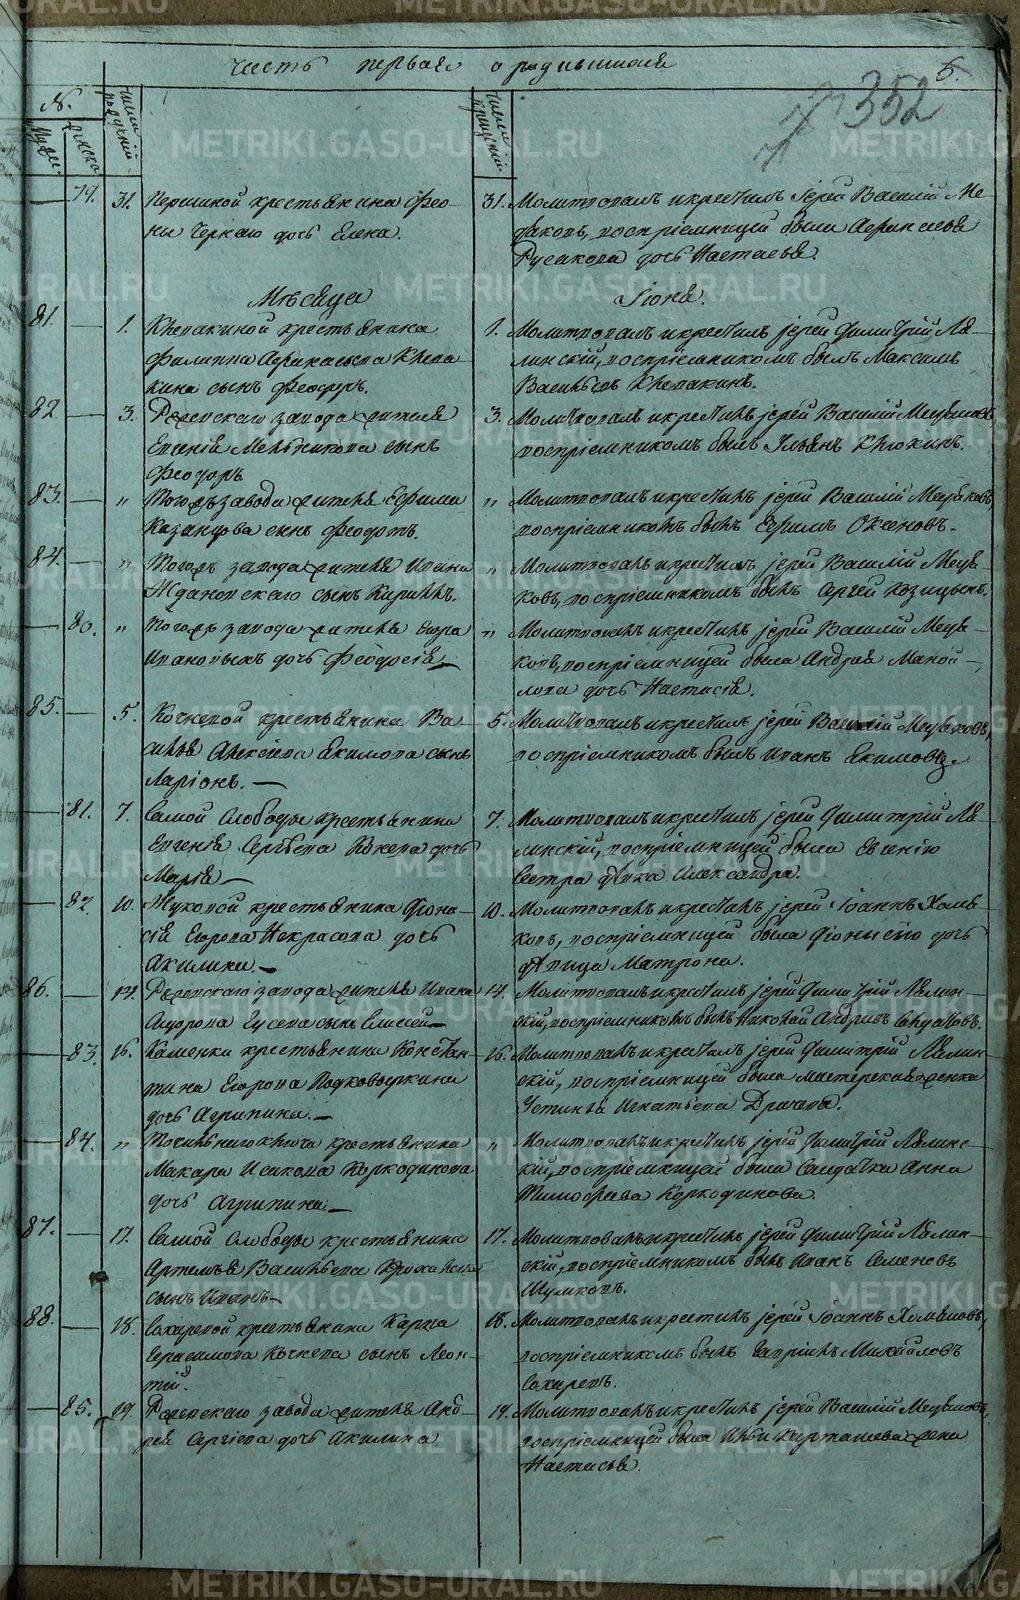 Часть первая о родившихся
6.
352
№.
Муже.
Женска
Числа рожденій
Числа крещеній
79. 31. Першиной крестьянина Фео-
ни Чернаго дочь Елена.
31. Молитвовалъ и крестилъ Іерей Василій Ме-
дяковъ, воспріемницей была Афанасья
Русакова дочь Настасья.
Мѣсяца Іюня.
81. 1. Клепакиной крестьянина
Филиппа Афанасьева Клепа-
кина сынъ Феодоръ.
1. Молитвовалъ и крестилъ іерей Димитрій Ля-
линскій, воспріемникомъ былъ Максимъ
Васильевъ Клепакинъ.
82. 3. Режевскаго завода жителя
Евгенія Мельникова сынъ
Феодоръ
3. Молитвовалъ и крестилъ іерей Василій Медяковъ,
воспріемникомъ былъ Ульянъ Клюкинъ.
83. " Тогожъ завода жителя Ефима
Казанцова сынъ Феодотъ.
" Молитвовалъ и крестилъ іерей Василій Медяковъ,
воспріемникомъ былъ Ефимъ Оксеновъ.
84. " Тогожъ завода жителя Ивана
Ждановскаго сынъ Кирилъ.
" Молитвовалъ и крестилъ іерей Василій Медя-
ковъ, воспріемникомъ былъ Сергей Козицынъ.
80. " Тогожъ завода жителя Егора
Ивановыхъ дочь Феодосія
" Молитвовалъ и крестилъ іерей Василій Медя-
ковъ, воспріемницей была Андрея Маной-
лова дочь Настасія.
85. 5. Кочневой крестьянина Ва-
силья Алексіева Екимова сынъ
Ларіонъ.
5. Молитвовалъ и крестилъ іерей Василій Медяковъ,
воспріемникомъ былъ Иванъ Екимовъ.
81. 7. Самой Слободы крестьянина
Евгенія Сергѣева дочь
Марія
7. Молитвовалъ и крестилъ іерей Димитрій Ля-
линскій, воспріемницей была Евгенію
Сестра дѣвка Александра.
82. 10. Жуковой крестьянина Діони-
сія Егорова Некрасова дочь
Акилина
10. Молитвовалъ и крестилъ іерей Іоаннъ Хомя-
ковъ, воспріемницей была Діонисію дочь
дѣвица Матрона.
86. 14. Режевскаго завода жителя Ивана
сынъ Елисей
14. Молитвовалъ и крестилъ іерей Димитрій Лялин-
скій, воспріемникомъ былъ Николай Андріевъ
83. 16. Каменки крестьянина Констан-
тина Егорова Подковыркина
дочь Агрипина.
16. Молитвовалъ и крестилъ іерей Димитрій Лялин-
скій, воспріемницей была мастерская женка
Устинья Игнатьева Драчева.
84. " Точильнаго ключа крестьянина
Макара Исакова Коркодинова
дочь Агрипина
" Молитвовалъ и крестилъ іерей Димитрій Лялинс-
кій, воспріемницей была Солдатка Анна
Тимофѣева Коркодинова.
87. 17. Самой Слободы крестьянина
Артемья Васильева
сынъ Иванъ
17. Молитвовалъ и крестилъ іерей Димитрій Лялин-
скій, воспріемникомъ былъ Иванъ Семеновъ
Шумковъ.
88. 18. Сохаревой крестьянина Карпа
Герасимова Кочнева сынъ Леон-
тій.
18. Молитвовалъ и крестилъ іерей Іоаннъ Хомяковъ,
воспріемникомъ былъ Гавріилъ Михайловъ
Сохаревъ.
85. 19. Режевскаго завода жителя Анд-
рея Сергіева дочь Акилина
19. Молитвовалъ и крестилъ іерей Василій Медяковъ,
воспріемницей была Карташева жена
Настасья.
METRIKI.GASO-URAL.RU